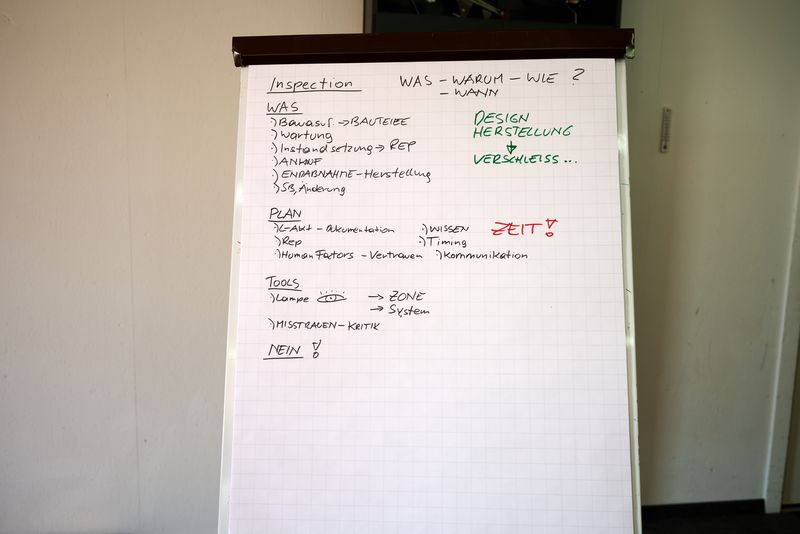 Inspection WAS - WARUM - WIE ?
- WANN
WAS
·) Bauausf. → BAUTEILE
·) Wartung
·) Instandsetzung → REP
·) ANKAUF
·) ENDABNAHME - Herstellung
·) SB, Änderung
DESIGN
HERSTELLUNG
↓
VERSCHLEISS ...
PLAN
·) L-Akt - Dokumentation ·) WISSEN ZEIT!
·) Rep ·) Timing
·) Human Factors - Vertrauen ·) Kommunikation
TOOLS
·) Lampe → ZONE
→ System
·) MISSTRAUEN - KRITIK
NEIN !